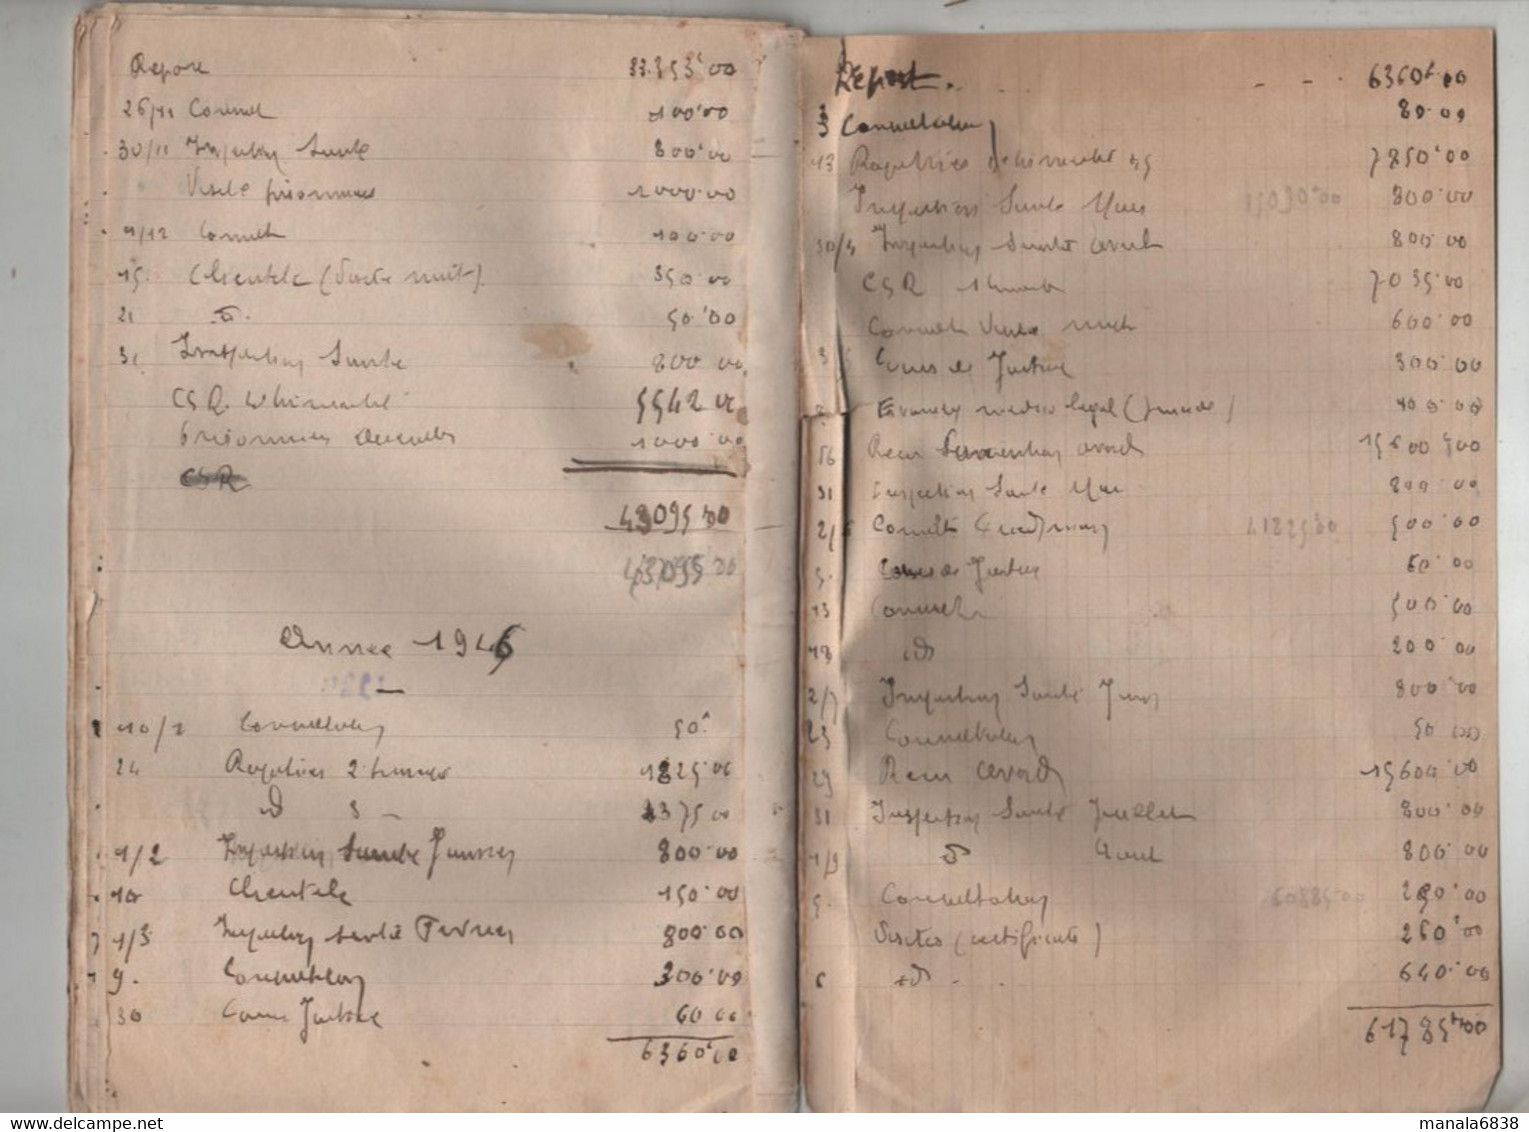 Report 33.353f00
26/11 Consult 100f00
30/11 Inspection Santé 800f00
Visite prisonniers 1000.00
1/12 Consult 100.00
15. Clientèle (Visite nuit) 350.00
21 d°. 50f00
31 Inspection Santé 800 00
CSR. trimestre 5542 00
Prisonniers 1000.00
CSR
43095.00
43095.00
Année 1946
10/1 Consultation 50f
24 2 1825.00
d° 3 - 1375.00
1/2 Inspection Santé Janvier 800.00
10 Clientèle 150.00
1/3 Inspection Santé Février 800.00
9. Consultation 300.00
30 Cour Justice 60 00
6360f00
Report. - - - 6360f.00
3 Consultation 80.00
13 trimestre 45 7850f00
Inspection Santé Mars 800.00
30/4 Inspection Santé Avril 800.00
CSR 1 trimestre 7035.00
Consult Visite nuit 600.00
3 5 Cour de Justice 300.00
8 Examen médico légal ( ) 400.00
16 15600f00
31 Inspection Santé Mai 800.00
2/6 Consult 41825.00 500.00
5. Cour de Justice 60.00
13 Consult 500.00
18 id° 200.00
2/7 Inspection Santé Juin 800.00
23 Consultation 50 00
29 15600.00
31 Inspection Santé Juillet 800.00
1/9 d° Aout 800.00
5. Consultation 60885.00 00
Visites (certificats) 260f00
6 id° - . 640.00
61785f00
manala6838